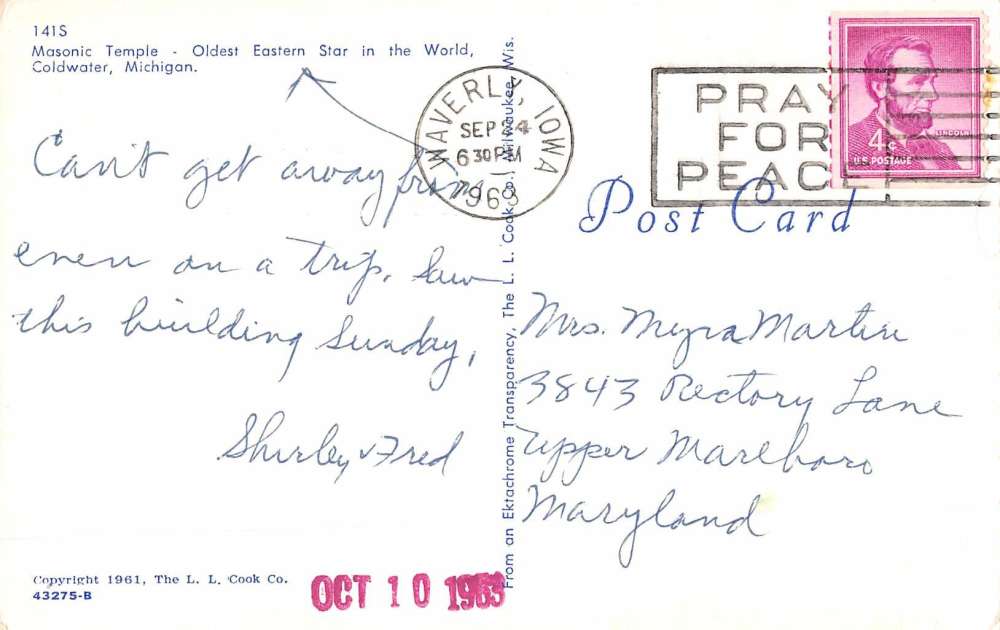 141S
Masonic Temple - Oldest Eastern Star in the World,
Coldwater, Michigan.
Can't get away from
even on a trip. Saw
this building Sunday,
Shirley & Fred
Copyright 1961, The L. L. Cook Co.
43275-B
OCT 10 1963
From an Ektachrome Transparency, The L. L. Cook Co., Milwaukee, Wis.
WAVERLY, IOWA
SEP 24
6 30 PM
1963
PRAY
FOR
PEACE
LINCOLN
4¢
U.S. POSTAGE
Post Card
Mrs. Myra Martin
3843 Rectory Lane
Upper Marlboro
Maryland